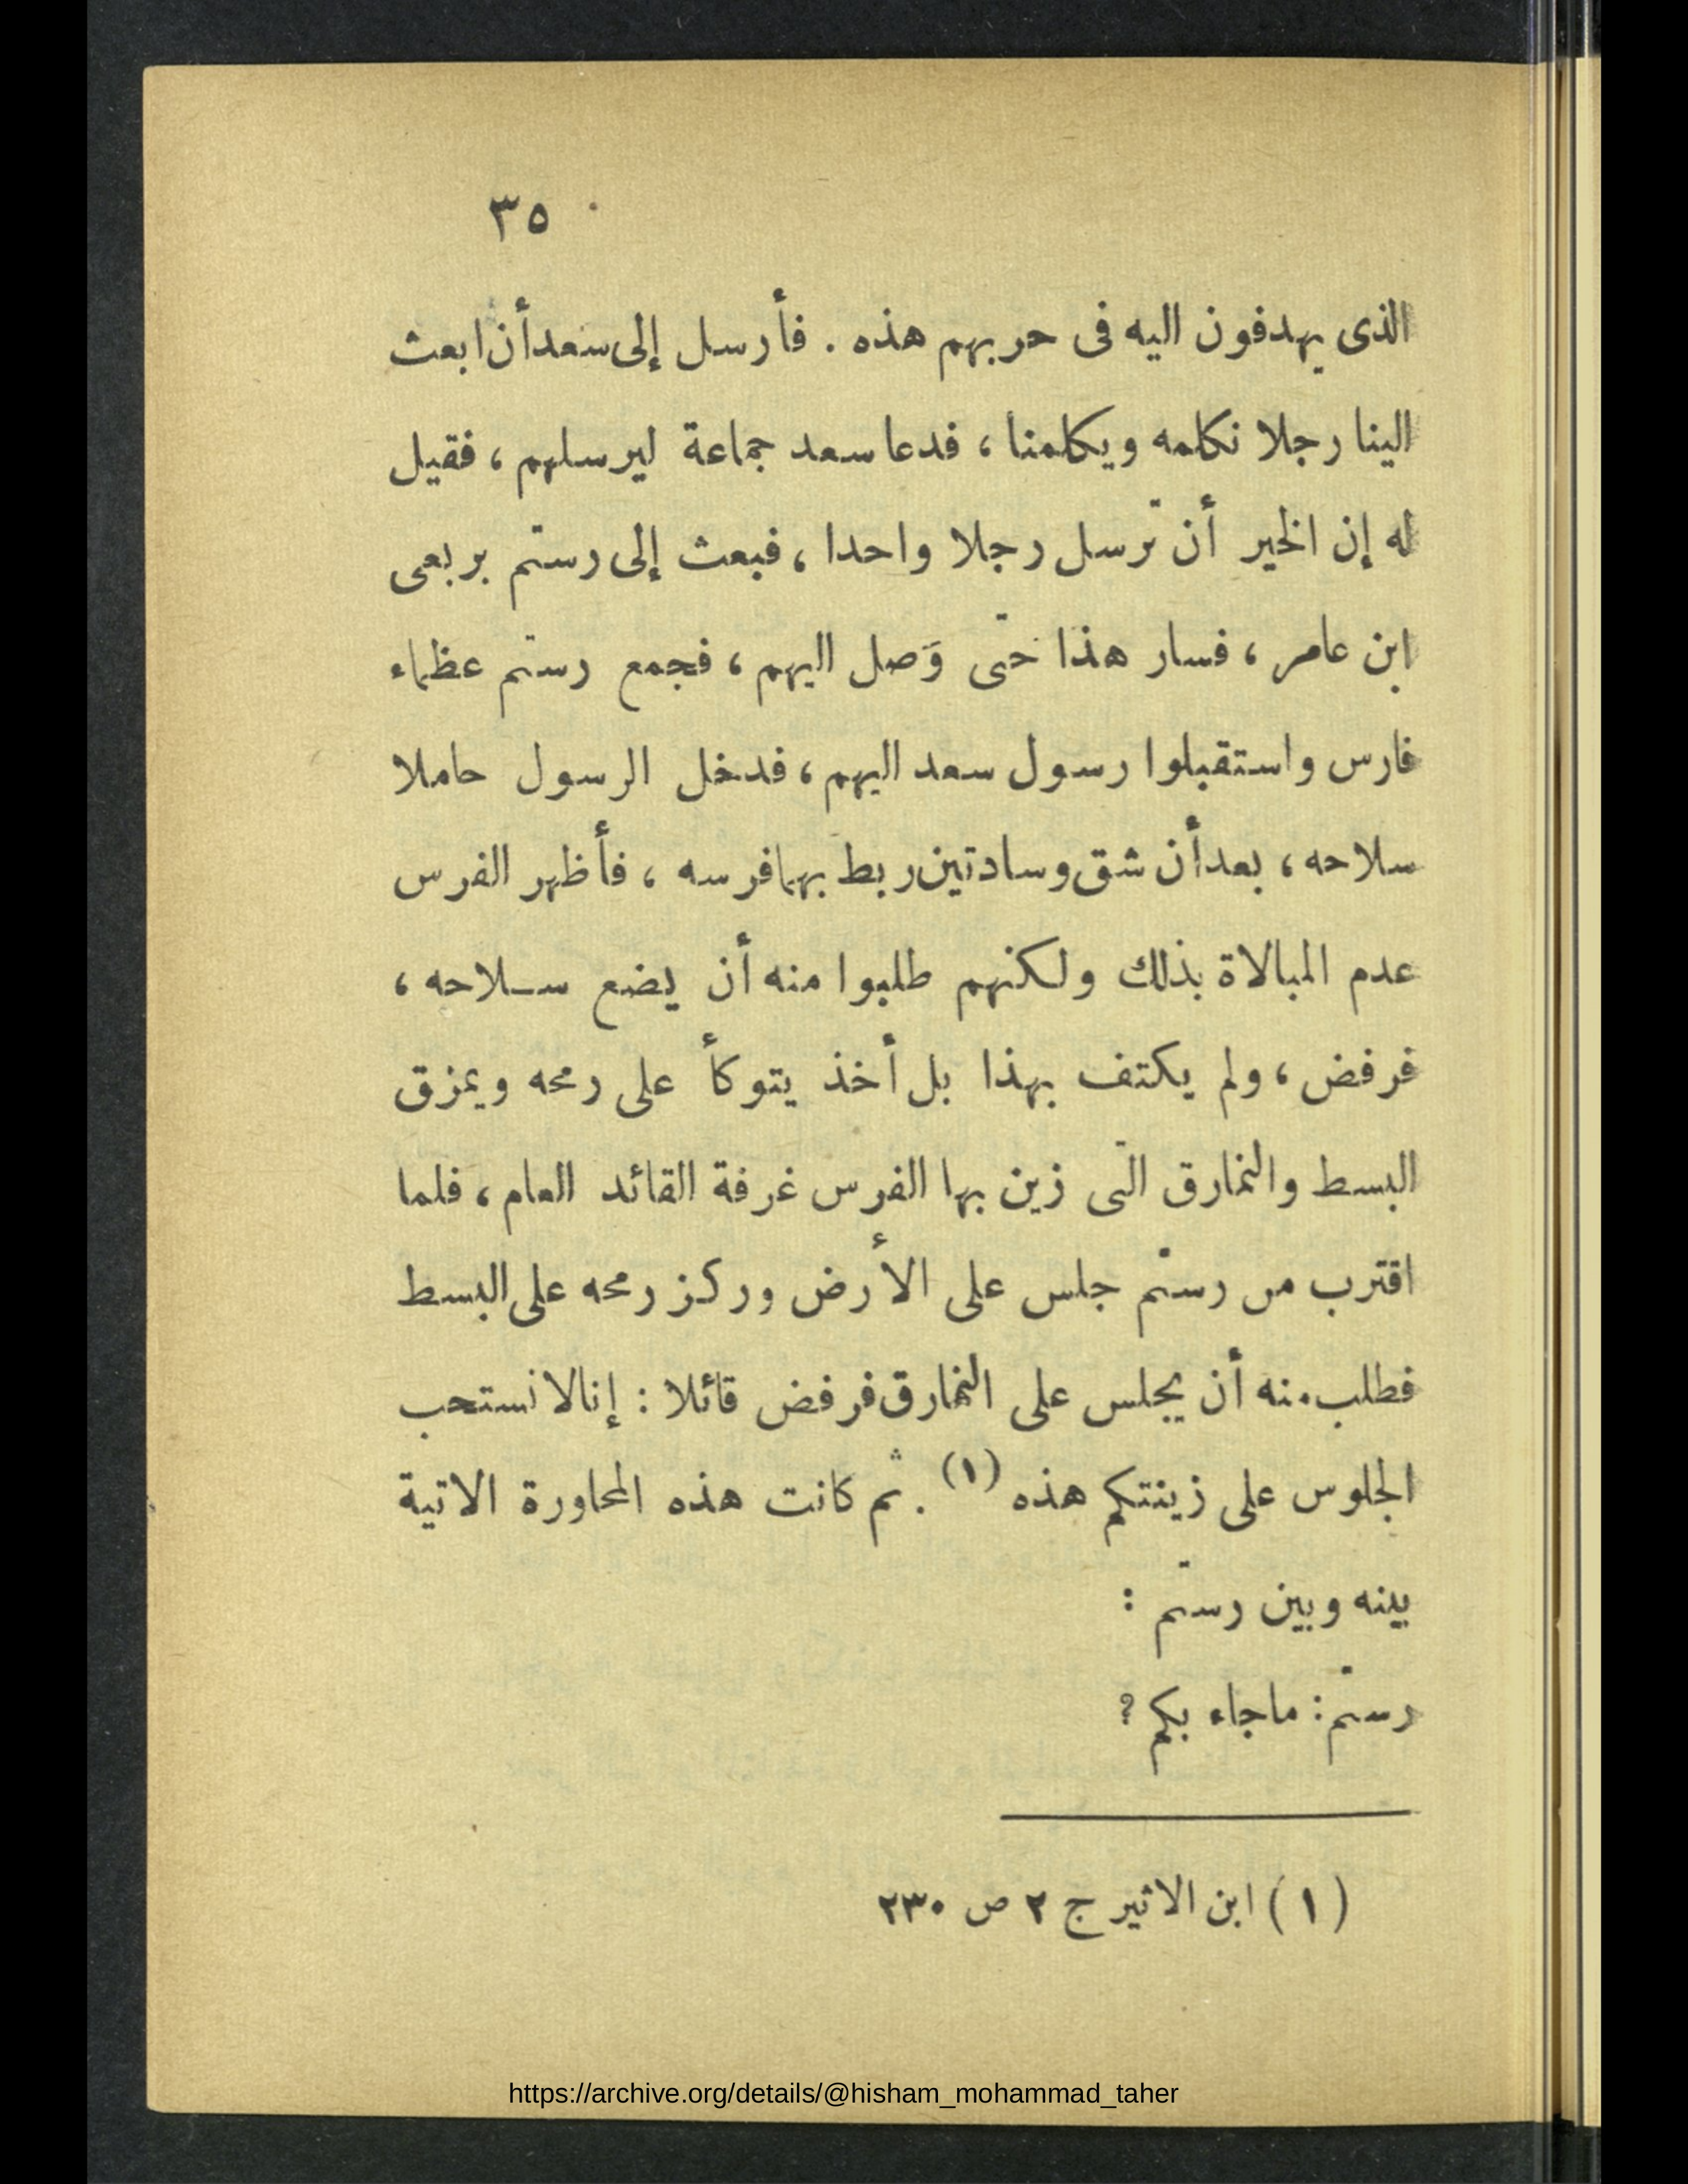 ٣٥
الذى يهدفون اليه فى حربهم هذه . فأرسل إلى سعد أن ابعث
الينا رجلا نكلمه ويكلمنا ، فدعا سعد جماعة ليرسلهم ، فقيل
له إن الخير أن ترسل رجلا واحدا ، فبعث إلى رستم بربعى
ابن عامر ، فسار هذا حتى وَصل اليهم ، فجمع رستم عظماء
فارس واستقبلوا رسول سعد اليهم ، فدخل الرسول حاملا
سلاحه ، بعد أن شق وسادتين ربط بهما فرسه ، فأظهر الفرس
عدم المبالاة بذلك ولكنهم طلبوا منه أن يضع سـلاحه ،
فرفض ، ولم يكتف بهذا بل أخذ يتوكأ على رمحه ويمزق
البسط والنمارق التى زين بها الفرس غرفة القائد العام ، فلما
اقترب من رستم جلس على الأرض وركز رمحه على البسط
فطلب منه أن يجلس على النمارق فرفض قائلا : إنا لا نستحب
الجلوس على زينتكم هذه (١) . ثم كانت هذه المحاورة الاتية
بينه وبين رستم :
رستم : ما جاء بكم ؟
(١) ابن الاثير ج ٢ ص ٢٣٠
https://archive.org/details/@hisham_mohammad_taher